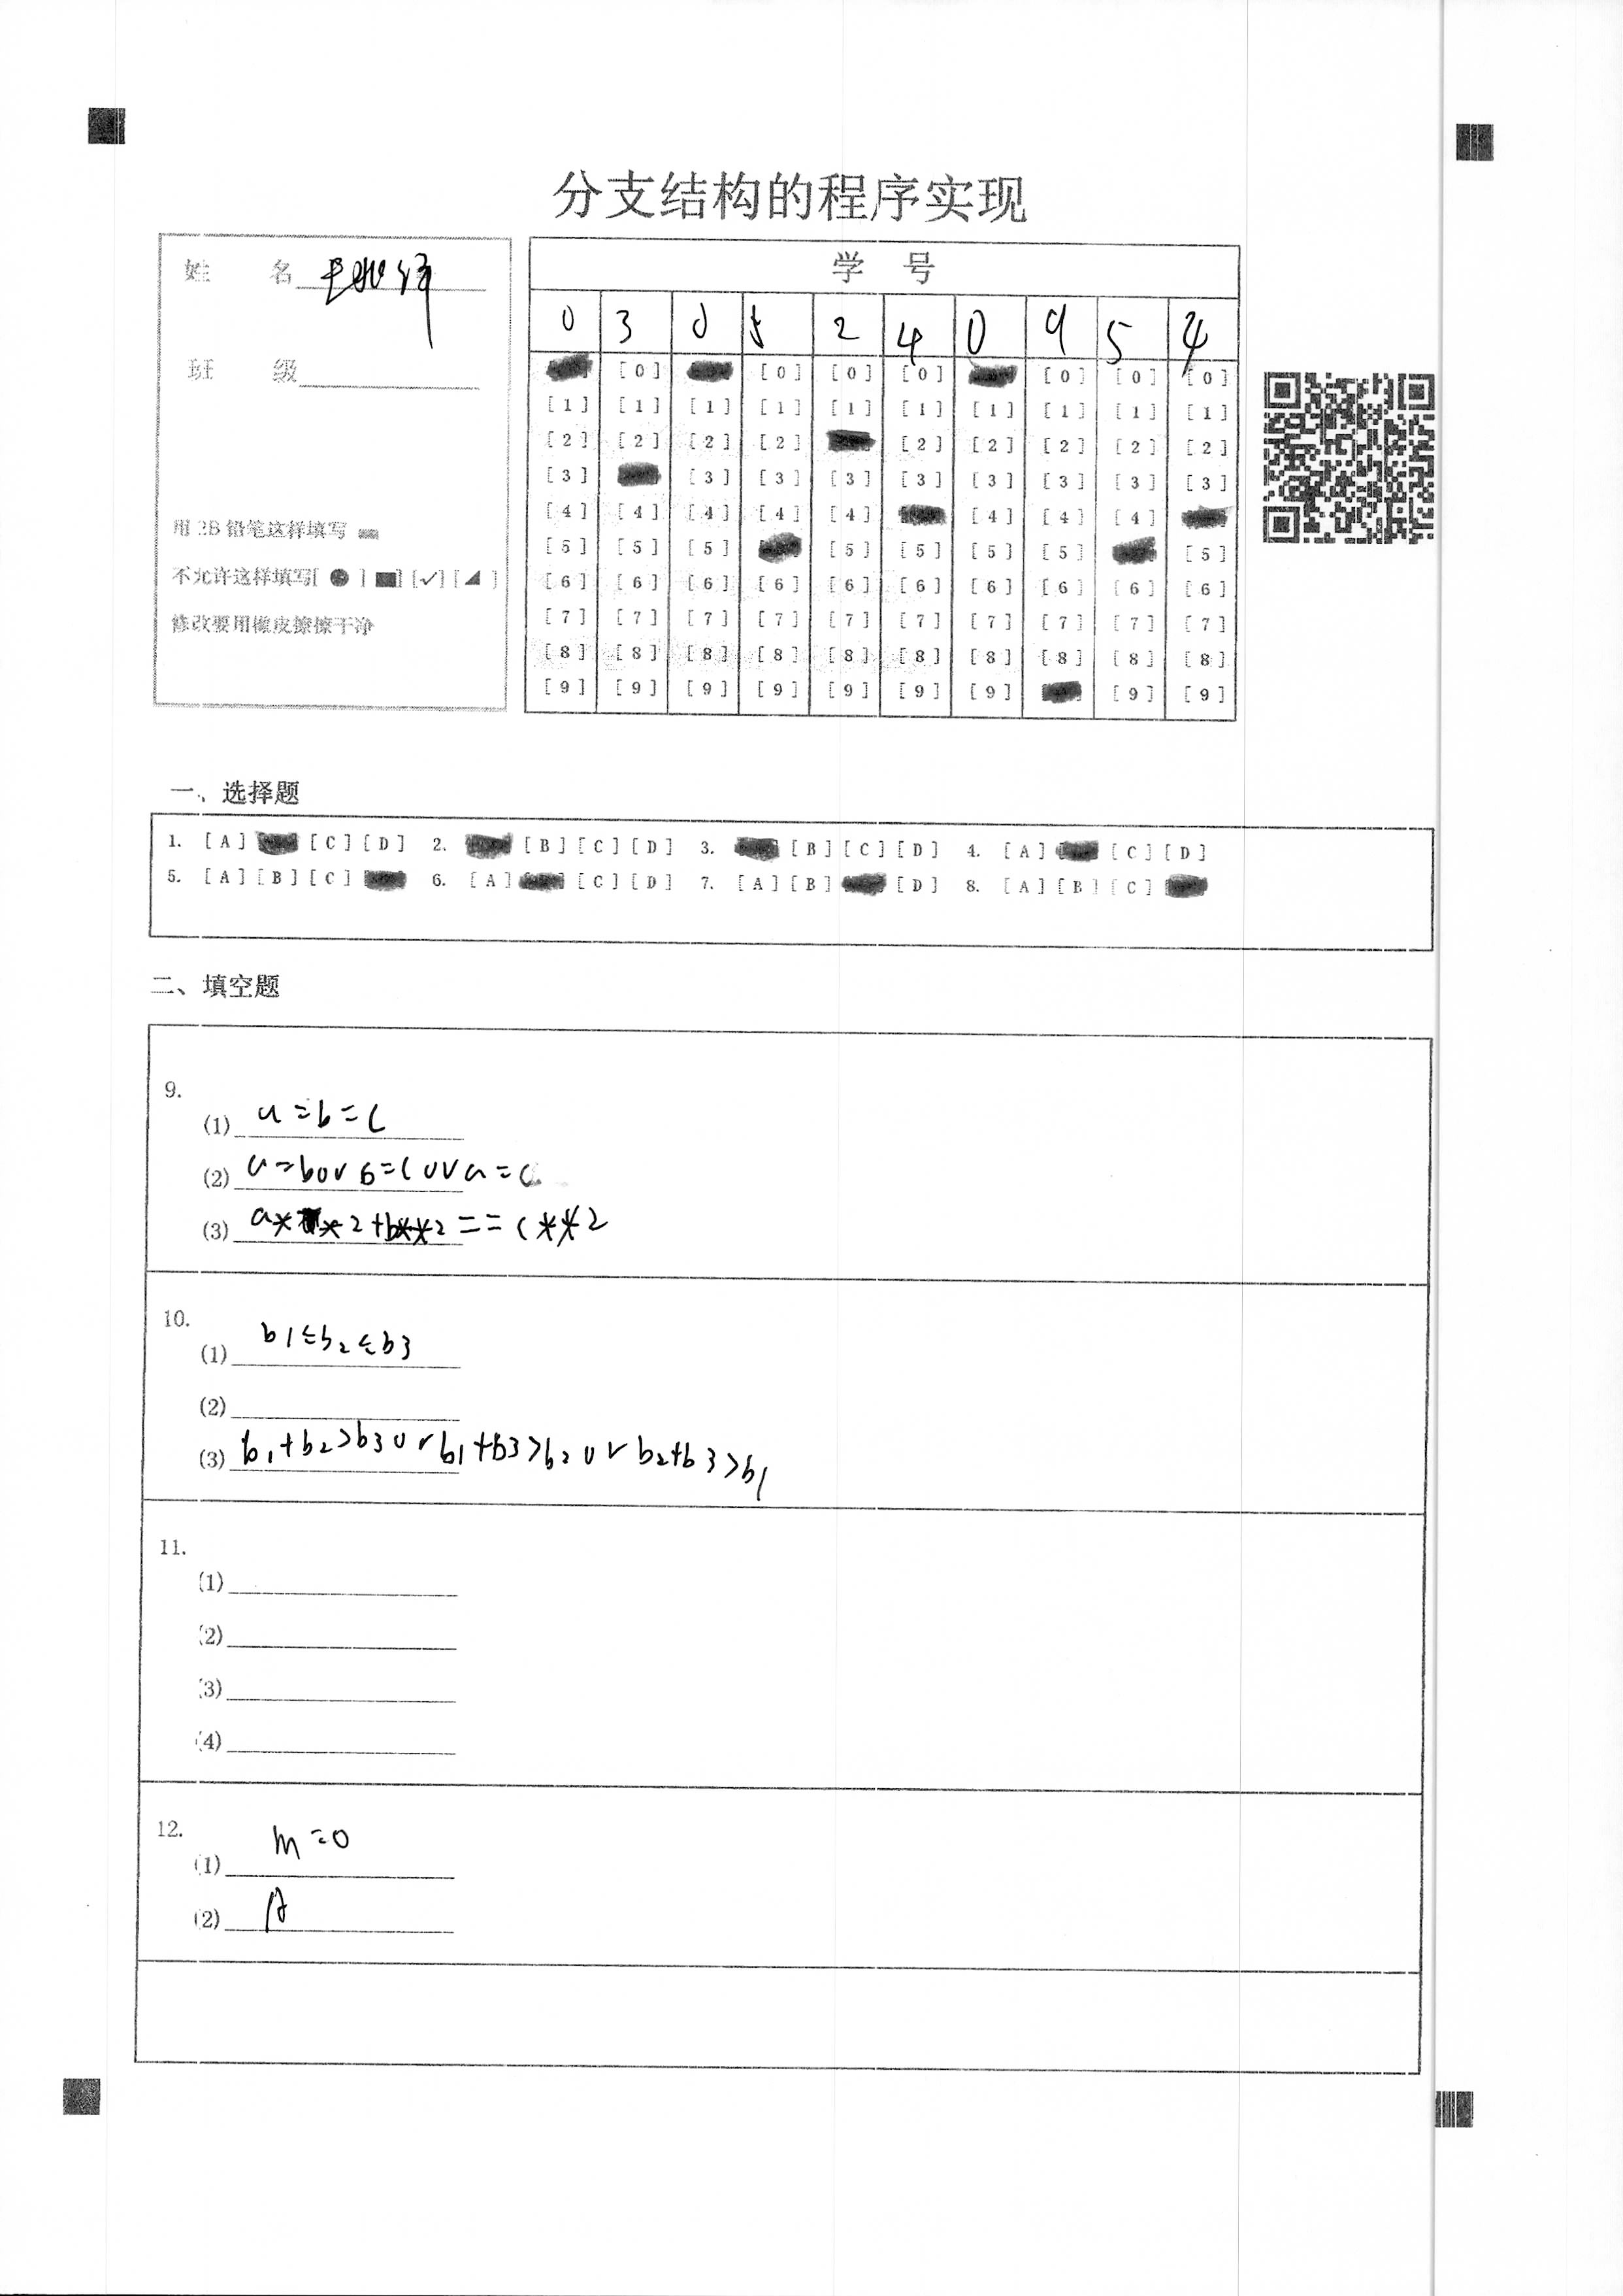 分支结构的程序实现
姓 名
班 级
用 2B 铅笔这样填写
不允许这样填写[ ● ] ■] [✓] [◢ ]
修改要用橡皮擦擦干净
学 号
0 3 0 5 2 4 0 9 5 4
[0] [0] [0] [0] [0] [0] [0]
[1] [1] [1] [1] [1] [1] [1] [1] [1] [1]
[2] [2] [2] [2] [2] [2] [2] [2] [2]
[3] [3] [3] [3] [3] [3] [3] [3] [3]
[4] [4] [4] [4] [4] [4] [4] [4]
[5] [5] [5] [5] [5] [5] [5] [5]
[6] [6] [6] [6] [6] [6] [6] [6] [6] [6]
[7] [7] [7] [7] [7] [7] [7] [7] [7] [7]
[8] [8] [8] [8] [8] [8] [8] [8] [8] [8]
[9] [9] [9] [9] [9] [9] [9] [9] [9]
一、选择题
1. [A] [C] [D] 2. [B] [C] [D] 3. [B] [C] [D] 4. [A] [C] [D]
5. [A] [B] [C] 6. [A] [C] [D] 7. [A] [B] [D] 8. [A] [B] [C]
二、填空题
9.
(1) a=b=c
(2) a=bor b=c or a=c
(3) a**2+b**2==c**2
10.
(1) b1≤b2≤b3
(2)
(3) b1+b2>b3 or b1+b3>b2 or b2+b3>b1
11.
(1)
(2)
(3)
(4)
12.
(1) m=0
(2) A